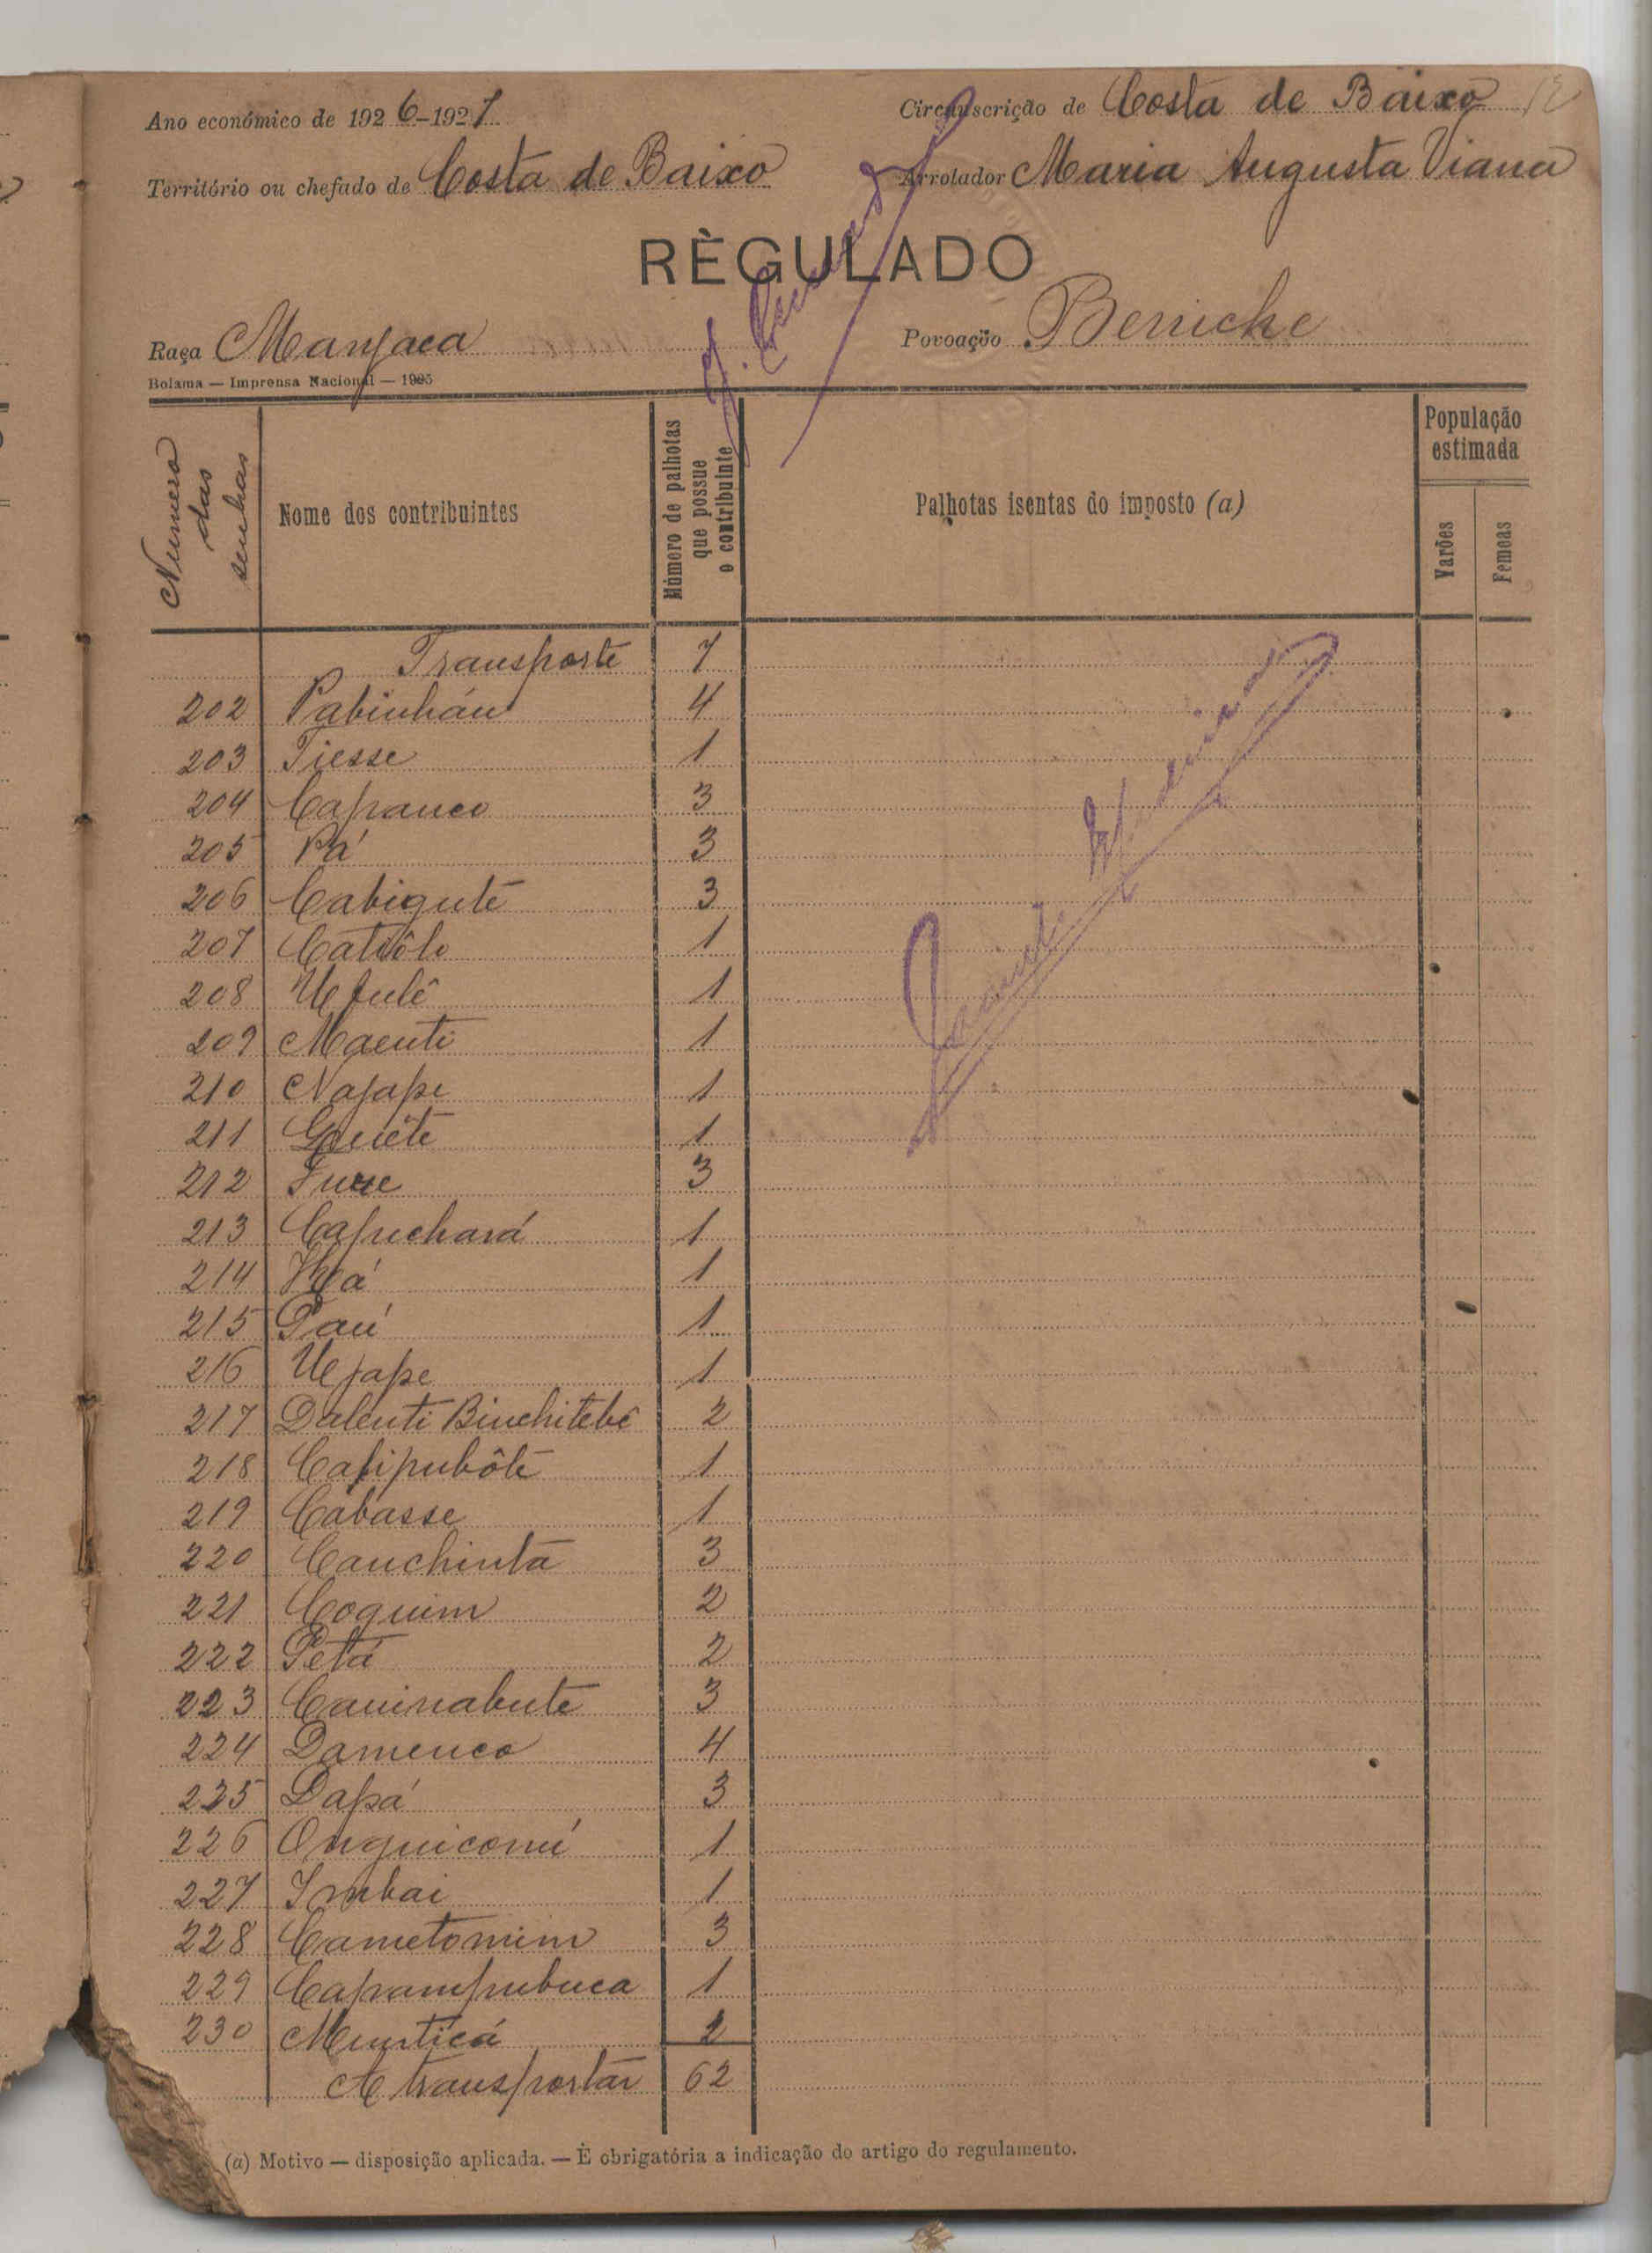 Ano económico de 1926-1927
Circunscrição de Costa de Baixo
Território ou chefado de Costa de Baixo
Arrolador Maria Augusta Viana
RÈGULADO
Raça Manjaca
Povoação Beniche
Bolama — Imprensa Nacional — 1925
Numero das senhas
Nome dos contribuintes
Número de palhotas que possue o contribuinte
Palhotas isentas do imposto (a)
População estimada
Varões
Femeas
Transporte 7
202 Pabinhán 4
203 Tiesse 1
204 Capanco 3
205 Pá 3
206 Cabigute 3
207 Catiôlo 1
208 Ufulê 1
209 Maenti 1
210 Najape 1
211 1
212 3
213 Capuchará 1
214 1
215 Paú 1
216 Ujape 1
217 Dalenti Binchitebé 2
218 Cafipubôte 1
219 Cabasse 1
220 Cauchinta 3
221 Coquim 2
222 Petá 2
223 Caninabute 3
224 Damenco 4
225 Dapá 3
226 Onquiconú 1
227 Imbai 1
228 Cametomim 3
229 Capampubuca 1
230 Munticá 2
A transportar 62
(a) Motivo — disposição aplicada. — È obrigatória a indicação do artigo do regulamento.